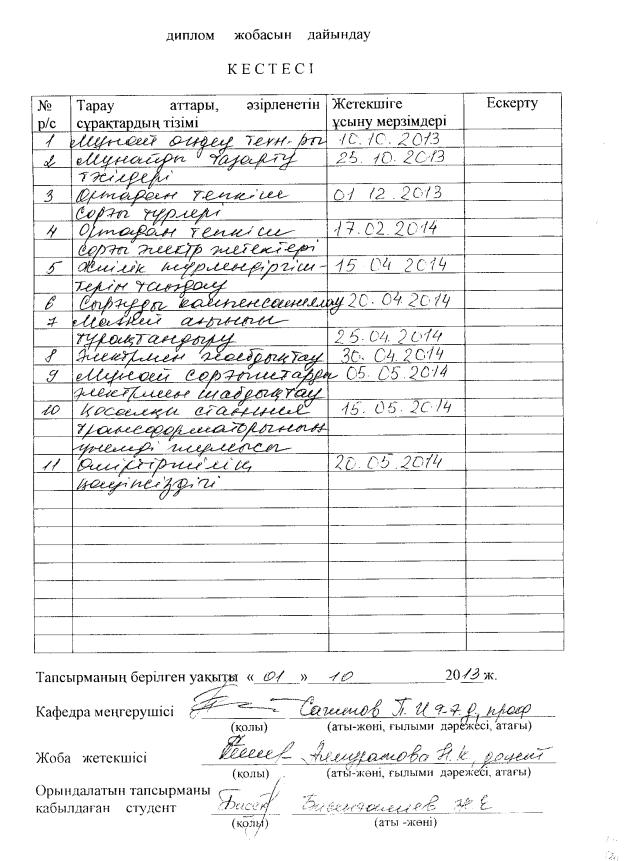 диплом жобасын дайындау
КЕСТЕСІ
№ р/с Тарау аттары, әзірленетін сұрақтардың тізімі Жетекшіге ұсыну мерзімдері Ескерту
1 Мұнай өңдеу техн-ры 10.10.2013
2 Мұнайды тазарту 25.10.2013
тәсілдері
3 Ортадан тепкіш 01 12.2013
сорғы түрлері
4 Ортадан тепкіш 17.02.2014
сорғы электр жетектері
5 Жиілік түрлендіргіш- 15 04 2014
терін таңдау
6 Сырғуды компенсациялау 20.04.2014
7 Магний ағынын
тұрақтандыру 25.04.2014
8 Электрмен жабдықтау 30.04.2014
9 Мұнай сорғыштарды 05.05.2014
электрмен жабдықтау
10 Қосалқы станция 15.05.2014
трансформаторының
үнемді жұмысы
11 Өміртіршілік 20.05.2014
қауіпсіздігі
Тапсырманың берілген уақыты « 01 » 10 2013 ж.
Кафедра меңгерушісі Сагитов П.И
(қолы) (аты-жөні, ғылыми дәрежесі, атағы)
Жоба жетекшісі Алмуратова Н.К, доцент
(қолы) (аты-жөні, ғылыми дәрежесі, атағы)
Орындалатын тапсырманы
қабылдаған студент
(қолы) (аты -жөні)